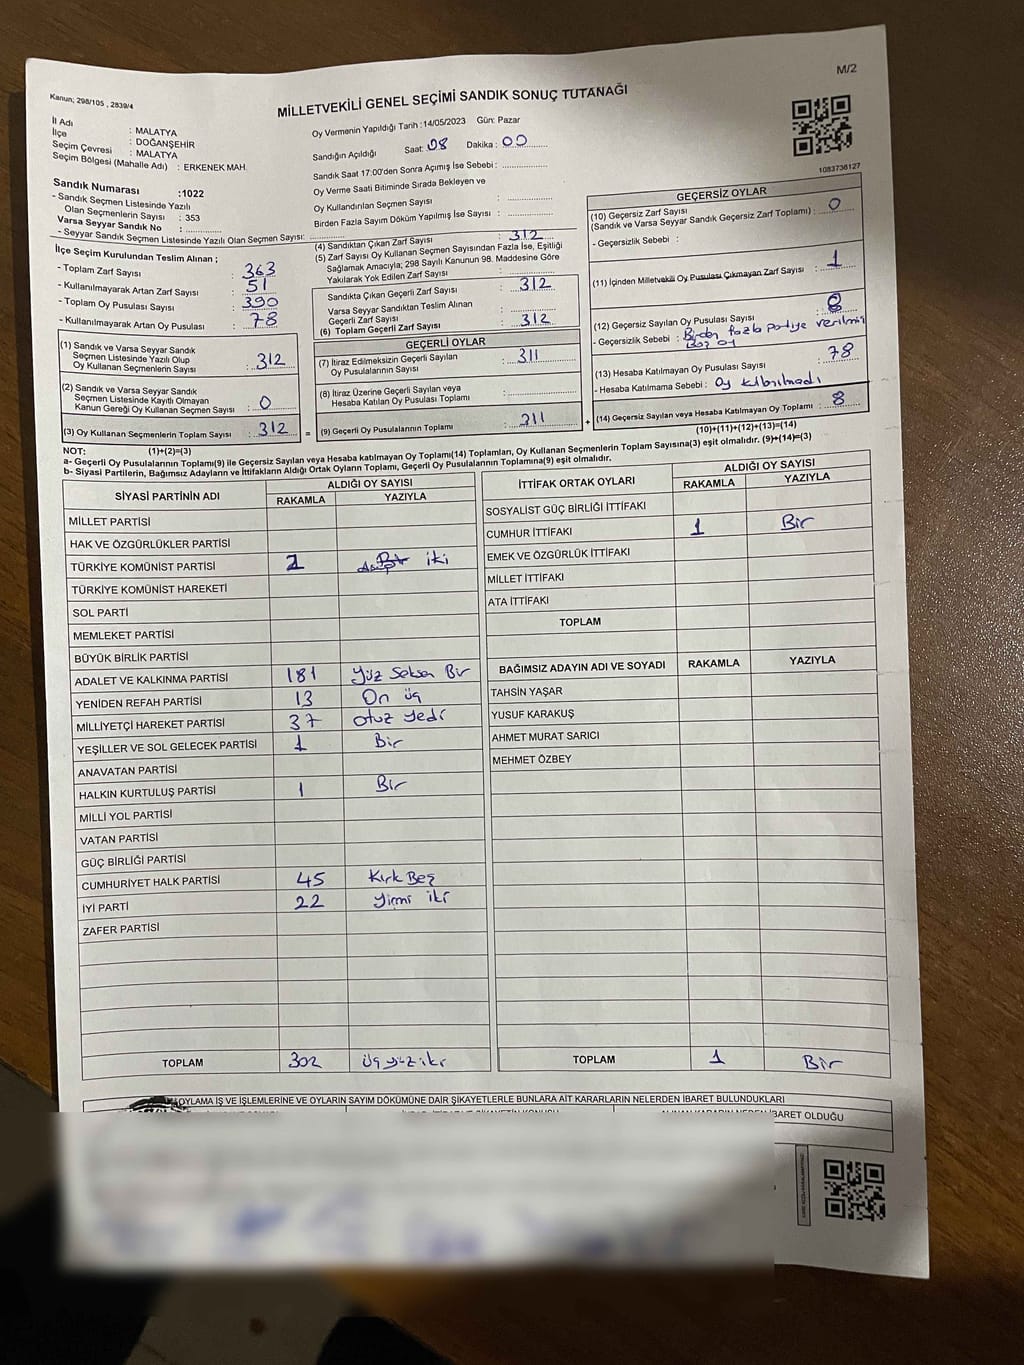 M/2
Kanun; 298/105 , 2839/4
MİLLETVEKİLİ GENEL SEÇİMİ SANDIK SONUÇ TUTANAĞI
İl Adı : MALATYA
İlçe : DOĞANŞEHİR
Seçim Çevresi : MALATYA
Seçim Bölgesi (Mahalle Adı) : ERKENEK MAH.
Sandık Numarası :1022
- Sandık Seçmen Listesinde Yazılı
Olan Seçmenlerin Sayısı : 353
Varsa Seyyar Sandık No :
- Seyyar Sandık Seçmen Listesinde Yazılı Olan Seçmen Sayısı:
Oy Vermenin Yapıldığı Tarih :14/05/2023 Gün: Pazar
Sandığın Açıldığı Saat: 08 Dakika : 00
Sandık Saat 17:00'den Sonra Açımış İse Sebebi :
Oy Verme Saati Bitiminde Sırada Bekleyen ve
Oy Kullandırılan Seçmen Sayısı :
Birden Fazla Sayım Döküm Yapılmış İse Sayısı :
1083736127
İlçe Seçim Kurulundan Teslim Alınan ;
- Toplam Zarf Sayısı : 363
- Kullanılmayarak Artan Zarf Sayısı : 51
- Toplam Oy Pusulası Sayısı : 390
- Kullanılmayarak Artan Oy Pusulası : 78
(1) Sandık ve Varsa Seyyar Sandık
Seçmen Listesinde Yazılı Olup
Oy Kullanan Seçmenlerin Sayısı : 312
(2) Sandık ve Varsa Seyyar Sandık
Seçmen Listesinde Kayıtlı Olmayan
Kanun Gereği Oy Kullanan Seçmen Sayısı : 0
(3) Oy Kullanan Seçmenlerin Toplam Sayısı : 312
(1)+(2)=(3)
(4) Sandıktan Çıkan Zarf Sayısı : 312
(5) Zarf Sayısı Oy Kullanan Seçmen Sayısından Fazla İse, Eşitliği
Sağlamak Amacıyla; 298 Sayılı Kanunun 98. Maddesine Göre
Yakılarak Yok Edilen Zarf Sayısı :
Sandıkta Çıkan Geçerli Zarf Sayısı : 312
Varsa Seyyar Sandıktan Teslim Alınan
Geçerli Zarf Sayısı :
(6) Toplam Geçerli Zarf Sayısı : 312
GEÇERLİ OYLAR
(7) İtiraz Edilmeksizin Geçerli Sayılan
Oy Pusulalarının Sayısı : 311
(8) İtiraz Üzerine Geçerli Sayılan veya
Hesaba Katılan Oy Pusulası Toplamı :
= (9) Geçerli Oy Pusulalarının Toplamı : 311 +
GEÇERSİZ OYLAR
(10) Geçersiz Zarf Sayısı
(Sandık ve Varsa Seyyar Sandık Geçersiz Zarf Toplamı) : 0
- Geçersizlik Sebebi :
(11) İçinden Milletvekili Oy Pusulası Çıkmayan Zarf Sayısı : 1
(12) Geçersiz Sayılan Oy Pusulası Sayısı : 8
- Geçersizlik Sebebi : Birden fazla partiye verilmiş
Boş oy
(13) Hesaba Katılmayan Oy Pusulası Sayısı : 78
- Hesaba Katılmama Sebebi : Oy kullanılmadı
(14) Geçersiz Sayılan veya Hesaba Katılmayan Oy Toplamı : 8
(10)+(11)+(12)+(13)=(14)
NOT:
a- Geçerli Oy Pusulalarının Toplamı(9) ile Geçersiz Sayılan veya Hesaba Katılmayan Oy Toplamı(14) Toplamları, Oy Kullanan Seçmenlerin Toplam Sayısına(3) eşit olmalıdır. (9)+(14)=(3)
b- Siyasi Partilerin, Bağımsız Adayların ve İttifakların Aldığı Ortak Oyların Toplamı, Geçerli Oy Pusulalarının Toplamına(9) eşit olmalıdır.
SİYASİ PARTİNİN ADI ALDIĞI OY SAYISI
RAKAMLA YAZIYLA
MİLLET PARTİSİ
HAK VE ÖZGÜRLÜKLER PARTİSİ
TÜRKİYE KOMÜNİST PARTİSİ 2 iki
TÜRKİYE KOMÜNİST HAREKETİ
SOL PARTİ
MEMLEKET PARTİSİ
BÜYÜK BİRLİK PARTİSİ
ADALET VE KALKINMA PARTİSİ 181 Yüz Seksen Bir
YENİDEN REFAH PARTİSİ 13 On üç
MİLLİYETÇİ HAREKET PARTİSİ 37 otuz yedi
YEŞİLLER VE SOL GELECEK PARTİSİ 1 Bir
ANAVATAN PARTİSİ
HALKIN KURTULUŞ PARTİSİ 1 Bir
MİLLİ YOL PARTİSİ
VATAN PARTİSİ
GÜÇ BİRLİĞİ PARTİSİ
CUMHURİYET HALK PARTİSİ 45 Kırk Beş
İYİ PARTİ 22 yirmi iki
ZAFER PARTİSİ
TOPLAM 302 üç yüz iki
İTTİFAK ORTAK OYLARI ALDIĞI OY SAYISI
RAKAMLA YAZIYLA
SOSYALİST GÜÇ BİRLİĞİ İTTİFAKI
CUMHUR İTTİFAKI 1 Bir
EMEK VE ÖZGÜRLÜK İTTİFAKI
MİLLET İTTİFAKI
ATA İTTİFAKI
TOPLAM
BAĞIMSIZ ADAYIN ADI VE SOYADI RAKAMLA YAZIYLA
TAHSİN YAŞAR
YUSUF KARAKUŞ
AHMET MURAT SARICI
MEHMET ÖZBEY
TOPLAM 1 Bir
OYLAMA İŞ VE İŞLEMLERİNE VE OYLARIN SAYIM DÖKÜMÜNE DAİR ŞİKAYETLERLE BUNLARA AİT KARARLARIN NELERDEN İBARET BULUNDUKLARI
İBARET OLDUĞU